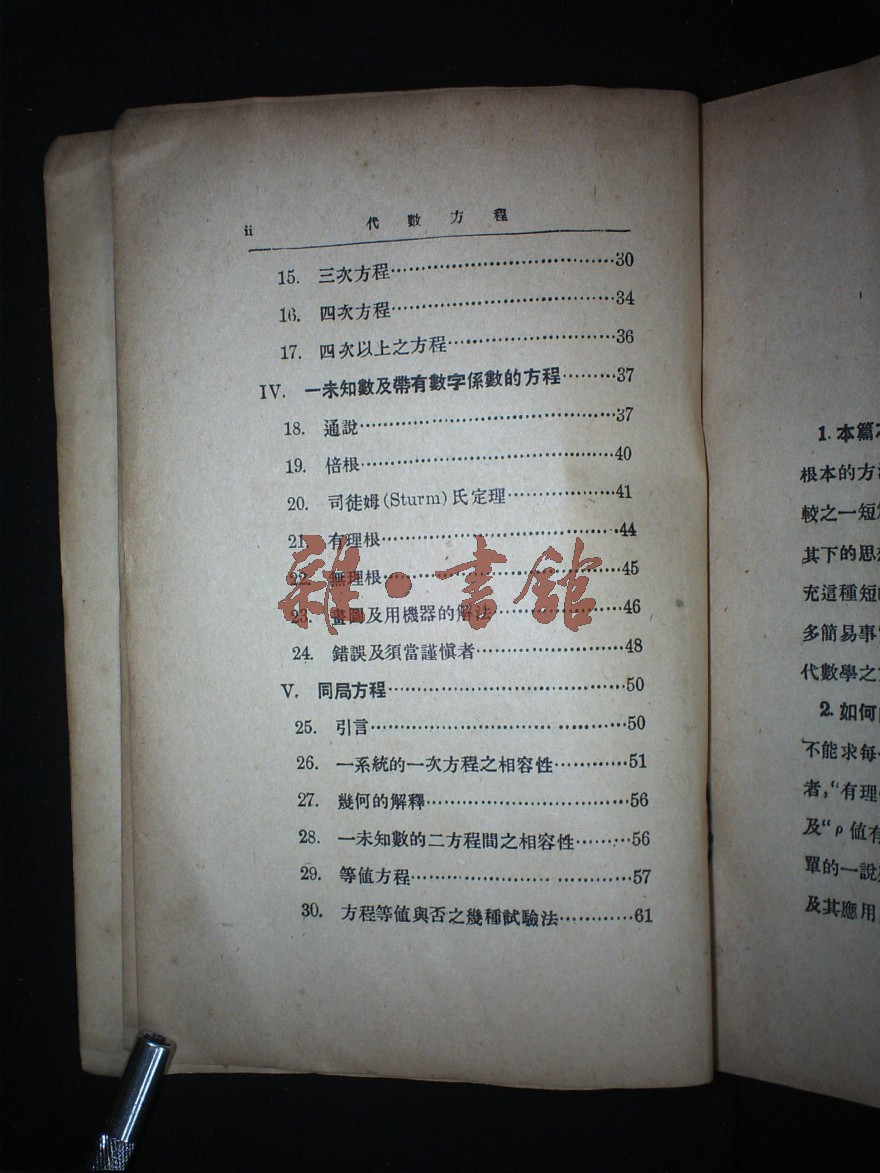 ii 代數方程
15. 三次方程……………………30
16. 四次方程……………………34
17. 四次以上之方程……………………36
IV. 一未知數及帶有數字係數的方程………37
18. 通說……………………37
19. 倍根……………………40
20. 司徒姆(Sturm)氏定理……………………41
21. 有理根……………………44
22. 無理根……………………45
23. 畫圖及用機器的解法……………………46
24. 錯誤及須當謹愼者……………………48
V. 同局方程……………………50
25. 引言……………………50
26. 一系統的一次方程之相容性…………51
27. 幾何的解釋……………………56
28. 一未知數的二方程間之相容性………56
29. 等值方程……………………57
30. 方程等值與否之幾種試驗法…………61
雜·書館
1. 本篇
根本的方
較之一短
其下的思
充這種短
多簡易事
代數學之
2. 如何
不能求每
者，“有理
及“ρ值有
單的一說
及其應用